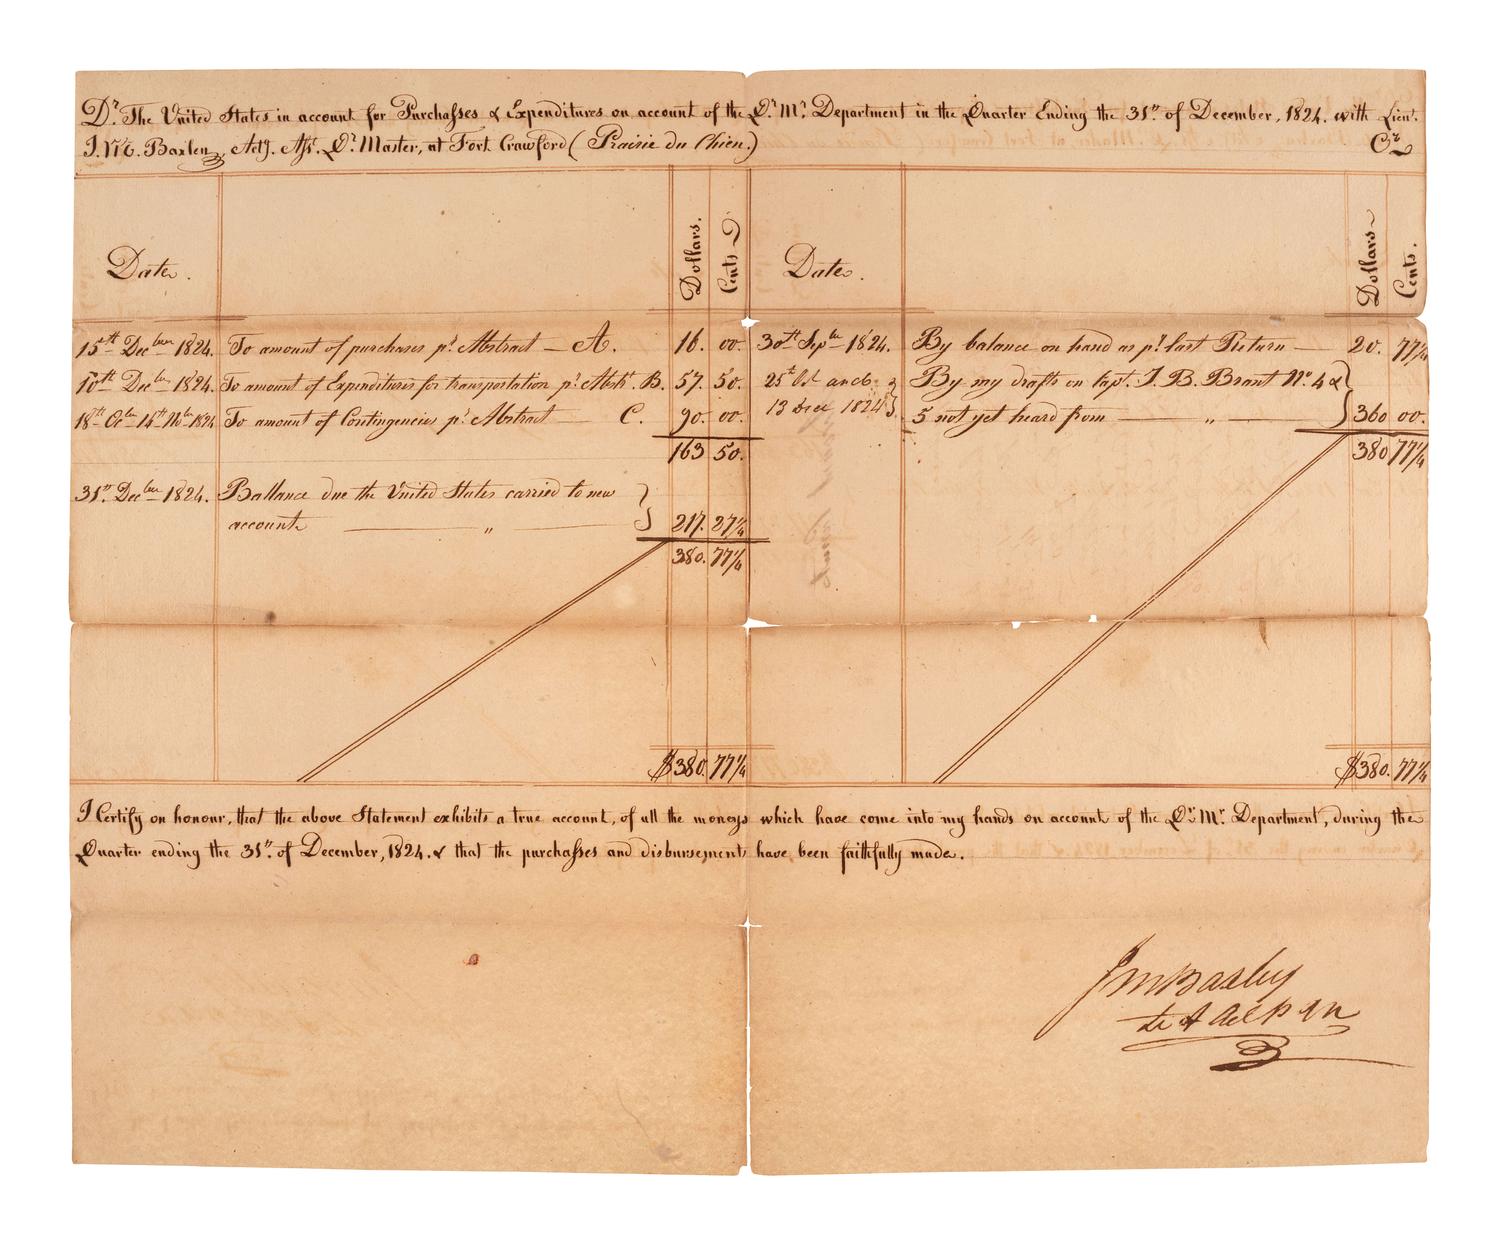 Dr. The United States in account for Purchasses & Expenditures on account of the Qr. Mr. Department in the Quarter Ending the 31st. of December, 1824. with Lieut.
J. M. Baxley, Actg. Asst. Qr. Master, at Fort Crawford (Prairie du Chien.) Cr.
Date. Dollars. Cents Date. Dollars Cents.
15th Decber 1824. To amount of purchases pr. Abstract — A. 16. 00. 30th Sepbr 1824. By balance on hand as pr. last Return — 20. 77¼
10th Decber 1824. To amount of Expenditures for transportation pr. Abstt. B. 57. 50. 25th Oct and By my drafts on Capt. J. B. Brant No. 4 &
18th Ocbr 14th Nobr 1824 To amount of Contingencies pr. Abstract — C. 90. 00. 13 Dec 1824 5 not yet heard from — " — 360 00.
163 50. 380 77¼
31st. Decber 1824. Ballance due the United States carried to new
account — " — 217. 27¼
380. 77¼
$380. 77¼ $380. 77¼
I Certify on honour, that the above Statement exhibits a true account, of all the moneys which have come into my hands on account of the Qr. Mr. Department, during the
Quarter ending the 31st. of December, 1824. & that the purchasses and disbursements have been faithfully made.
J M Baxley
Lt & A